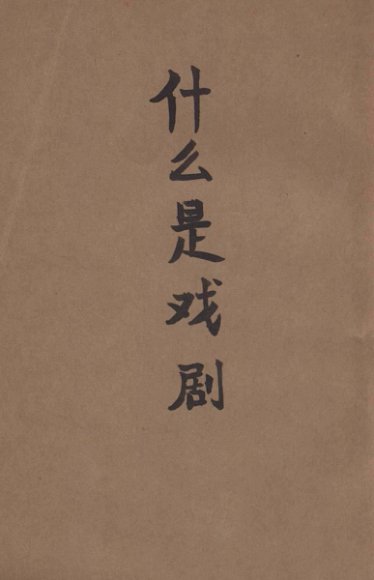 什么是戏剧